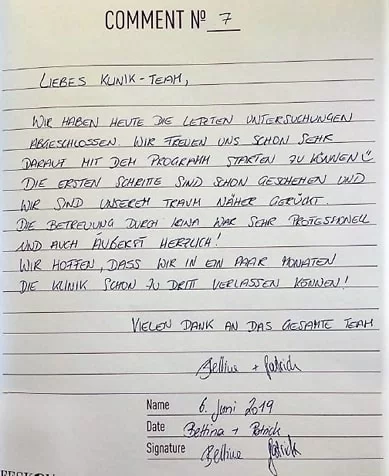 COMMENT Nº 7
LIEBES KLINIK-TEAM,
WIR HABEN HEUTE DIE LETZTEN UNTERSUCHUNGEN
ABGESCHLOSSEN. WIR FREUEN UNS SCHON SEHR
DARAUF MIT DEM PROGRAMM STARTEN ZU KÖNNEN☺
DIE ERSTEN SCHRITTE SIND SCHON GESCHEHEN UND
WIR SIND UNSEREM TRAUM NÄHER GERÜCKT.
DIE BETREUUNG DURCH WAR SEHR PROFESSIONELL
UND AUCH ÄUßERST HERZLICH!
WIR HOFFEN, DASS WIR IN EIN PAAR MONATEN
DIE KLINIK SCHON ZU DRITT VERLASSEN KÖNNEN!
VIELEN DANK AN DAS GESAMTE TEAM
Bettina + Patrick
Name 6. Juni 2019
Date Bettina + Patrick
Signature Bettina Patrick